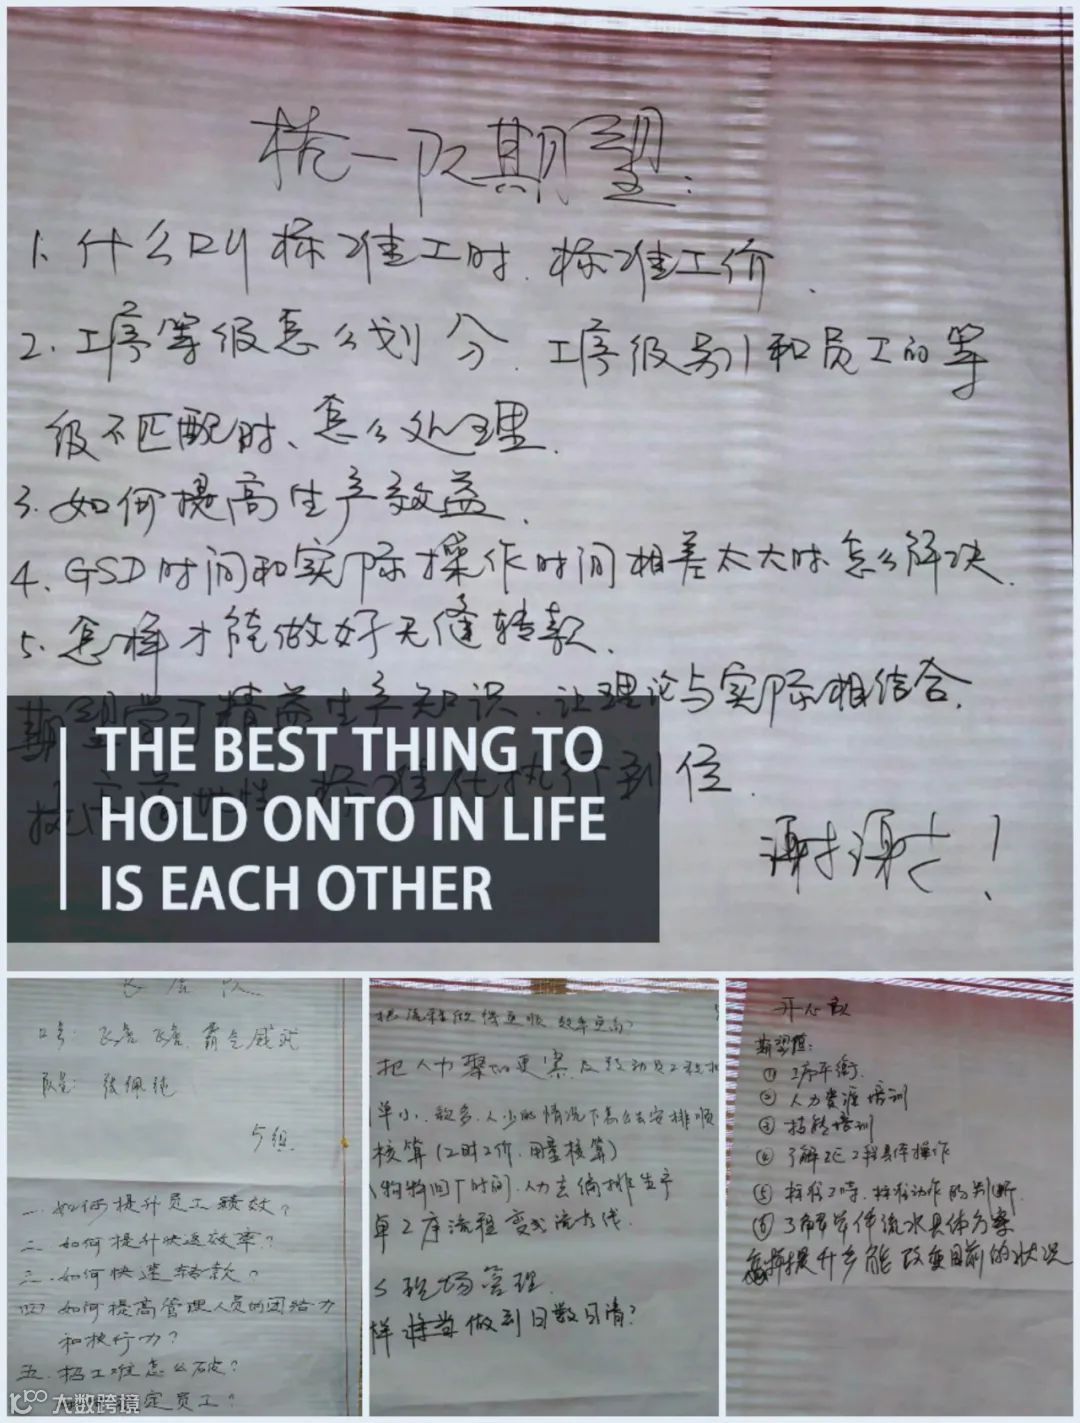 一队期望:
1.什么叫标准工时.标准工价.
2.工序等级怎么划分.工序级别和员工的等
级不匹配时、怎么处理.
3.如何提高生产效益.
4、GSD时间和实际操作时间相差太大时怎么解决.
5.怎样才能做好无缝转款.
期望学习精益生产知识.让理论与实际相结合.
标准化执行到位.
谢谢!
THE BEST THING TO
HOLD ONTO IN LIFE
IS EACH OTHER
飞虎队
口号:飞虎飞虎.霸气威武
队长:
5组.
一.如何提升员工绩效?
二.如何提升快返效率?
三.如何快速转款?
四.如何提高管理人员的团结力
和执行力?
五.招工难怎么破?
定员工?
大数跨境
把流程做得更顺 效率更高?
把人力聚的更紧
单小、款多、人少的情况下怎么去安排顺
核算(工时工价.用量核算)
时间.人力去编排生产
单工序流程变成流水线.
现场管理.
样 做到日数日清?
开心队
期望值:
①工序平衡.
②人力资源培训
③技能培训
④了解IE工程具体操作
⑤标准工时.标准动作的判断.
⑥了解单件流水具体方案
怎样提升产能改变目前的状况